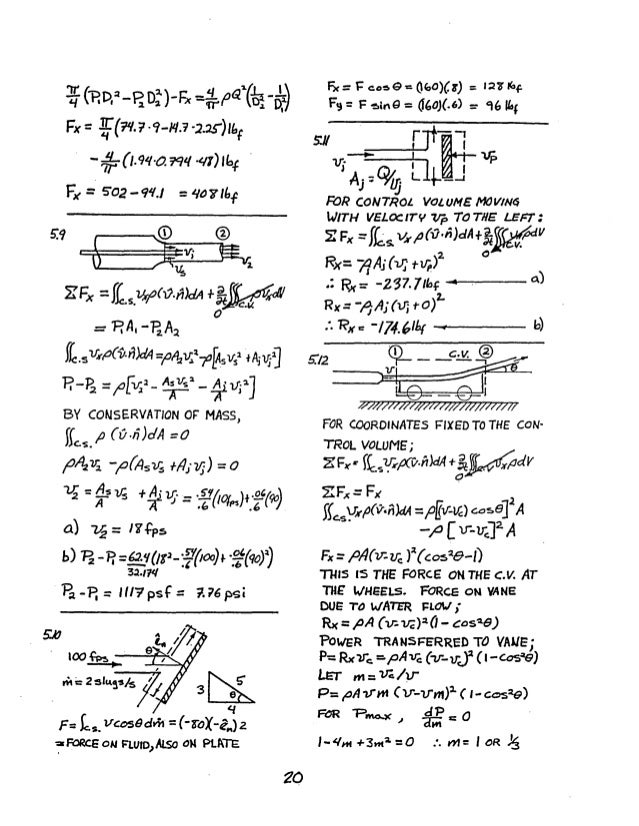 π/4 (P₁D₁² - P₂D₂²) - Fx = 4/π ρQ² (1/D₂² - 1/D₁²)
Fx = π/4 (74.7·9 - 14.7·2.25) lbf
- 4/π (1.94·0.794·48) lbf
Fx = 502 - 94.1 = 408 lbf
5.9
① ②
vj
vs
v₂
ΣFx = ∬c.s. vx ρ(v̂·n̂)dA + ∂/∂t ∭c.v. ρvx dV
0
= P₁A₁ - P₂A₂
∬c.s. vx ρ(v̂·n̂)dA = ρA₂v₂² - ρ[Asvs² + Ajvj²]
P₁-P₂ = ρ[v₂² - Asvs²/A - Aj/A vj²]
BY CONSERVATION OF MASS,
∬c.s. ρ(v̂·n̂)dA = 0
ρA₂v₂ - ρ(Asvs + Ajvj) = 0
v₂ = As/A vs + Aj/A vj = .54/.6 (10fps) + .06/.6 (90)
a) v₂ = 18 fps
b) P₂-P₁ = 62.4/32.174 (18² - .54/.6 (100) + .06/.6 (90)²)
P₂-P₁ = 1117 psf = 7.76 psi
5.10
ên
θ
100 fps
ṁ = 2 slugs/s
3
5
θ
4
F = ∫c.s. v cosθ dṁ = (-80)(-ên) 2
= FORCE ON FLUID, ALSO ON PLATE
Fx = F cosθ = (160)(.8) = 128 lbf
Fy = F sinθ = (160)(.6) = 96 lbf
5.11
vj
vp
Aj = Q/vj
FOR CONTROL VOLUME MOVING
WITH VELOCITY vp TO THE LEFT:
ΣFx = ∬c.s. vx ρ(v̂·n̂)dA + ∂/∂t ∭c.v. vxρdV
0
Rx = -ρjAj(vj + vp)²
∴ Rx = -237.7 lbf a)
Rx = -ρjAj(vj + 0)²
∴ Rx = -174.6 lbf b)
5.12
① C.V. ②
v
θ
FOR COORDINATES FIXED TO THE CON-
TROL VOLUME;
ΣFx = ∬c.s. vx ρ(v̂·n̂)dA + ∂/∂t ∭vxρdV
ΣFx = Fx
∬c.s. vxρ(v̂·n̂)dA = ρ[(v-vc) cosθ]² A
- ρ[v-vc]² A
Fx = ρA(v-vc)²(cos²θ-1)
THIS IS THE FORCE ON THE C.V. AT
THE WHEELS. FORCE ON VANE
DUE TO WATER FLOW;
Rx = ρA (v-vc)²(1 - cos²θ)
POWER TRANSFERRED TO VANE;
P = Rx vc = ρAvc (v-vc)² (1-cos²θ)
LET m = vc/v
P = ρAvm (v-vm)² (1-cos²θ)
FOR Pmax, dP/dm = 0
1-4m+3m² = 0 ∴ m = 1 OR 1/3
20